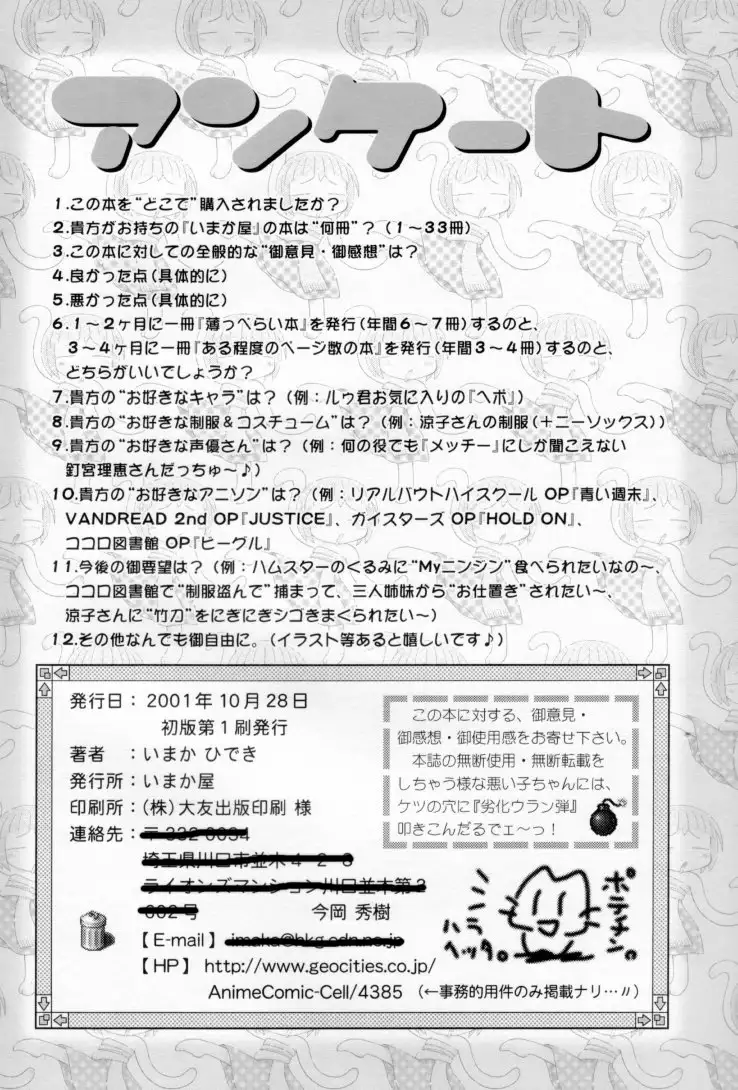 アンケート
1.この本を“どこで”購入されましたか？
2.貴方がお持ちの『いまか屋』の本は“何冊”？（1～33冊）
3.この本に対しての全般的な“御意見・御感想”は？
4.良かった点（具体的に）
5.悪かった点（具体的に）
6.1～2ヶ月に一冊『薄っぺらい本』を発行（年間6～7冊）するのと、
3～4ヶ月に一冊『ある程度のページ数の本』を発行（年間3～4冊）するのと、
どちらがいいでしょうか？
7.貴方の“お好きなキャラ”は？（例：ルゥ君お気に入りの『ヘポ』）
8.貴方の“お好きな制服＆コスチューム”は？（例：涼子さんの制服（＋ニーソックス））
9.貴方の“お好きな声優さん”は？（例：何の役でも『メッチー』にしか聞こえない
釘宮理恵さんだっちゅ～♪）
10.貴方の“お好きなアニソン”は？（例：リアルバウトハイスクール OP『青い週末』、
VANDREAD 2nd OP『JUSTICE』、ガイスターズ OP『HOLD ON』、
ココロ図書館 OP『ビーグル』
11.今後の御要望は？（例：ハムスターのくるみに“Myニンジン”食べられたいなの～、
ココロ図書館で“制服盗んで”捕まって、三人姉妹から“お仕置き”されたい～、
涼子さんに“竹刀”をにぎにぎシゴきまくられたい～）
12.その他なんでも御自由に。（イラスト等あると嬉しいです♪）
発行日：2001年10月28日
初版第1刷発行
著者　：いまか ひでき
発行所：いまか屋
印刷所：（株）大友出版印刷 様
連絡先：
今岡 秀樹
【E-mail】
【HP】 http://www.geocities.co.jp/
AnimeComic-Cell/4385 （←事務的用件のみ掲載ナリ…〃）
この本に対する、御意見・
御感想・御使用感をお寄せ下さい。
本誌の無断使用・無断転載を
しちゃう様な悪い子ちゃんには、
ケツの穴に『劣化ウラン弾』
叩きこんだるでェ～っ！
ポテチン。
ハラヘッタ。